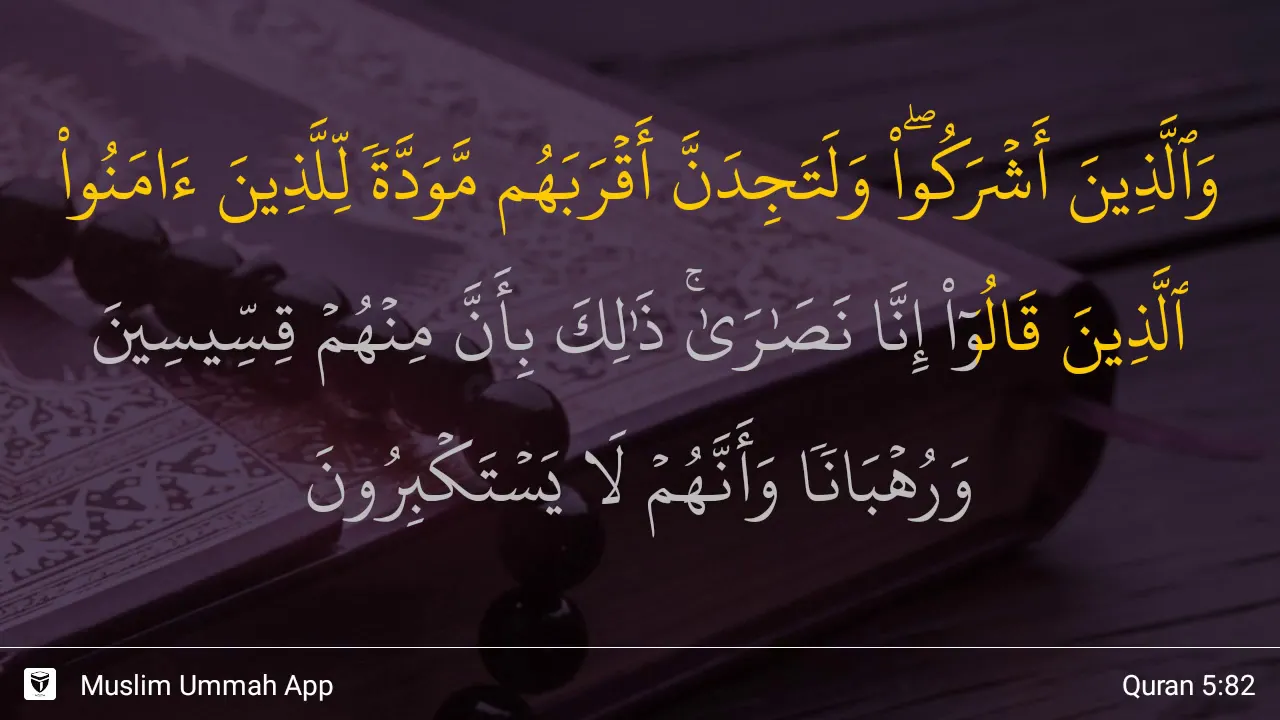 وَٱلَّذِينَ أَشْرَكُوا۟ ۖ وَلَتَجِدَنَّ أَقْرَبَهُم مَّوَدَّةً لِّلَّذِينَ ءَامَنُوا۟
ٱلَّذِينَ قَالُوٓا۟ إِنَّا نَصَـٰرَىٰ ۚ ذَٰلِكَ بِأَنَّ مِنْهُمْ قِسِّيسِينَ
وَرُهْبَانًا وَأَنَّهُمْ لَا يَسْتَكْبِرُونَ
Muslim Ummah App
Quran 5:82